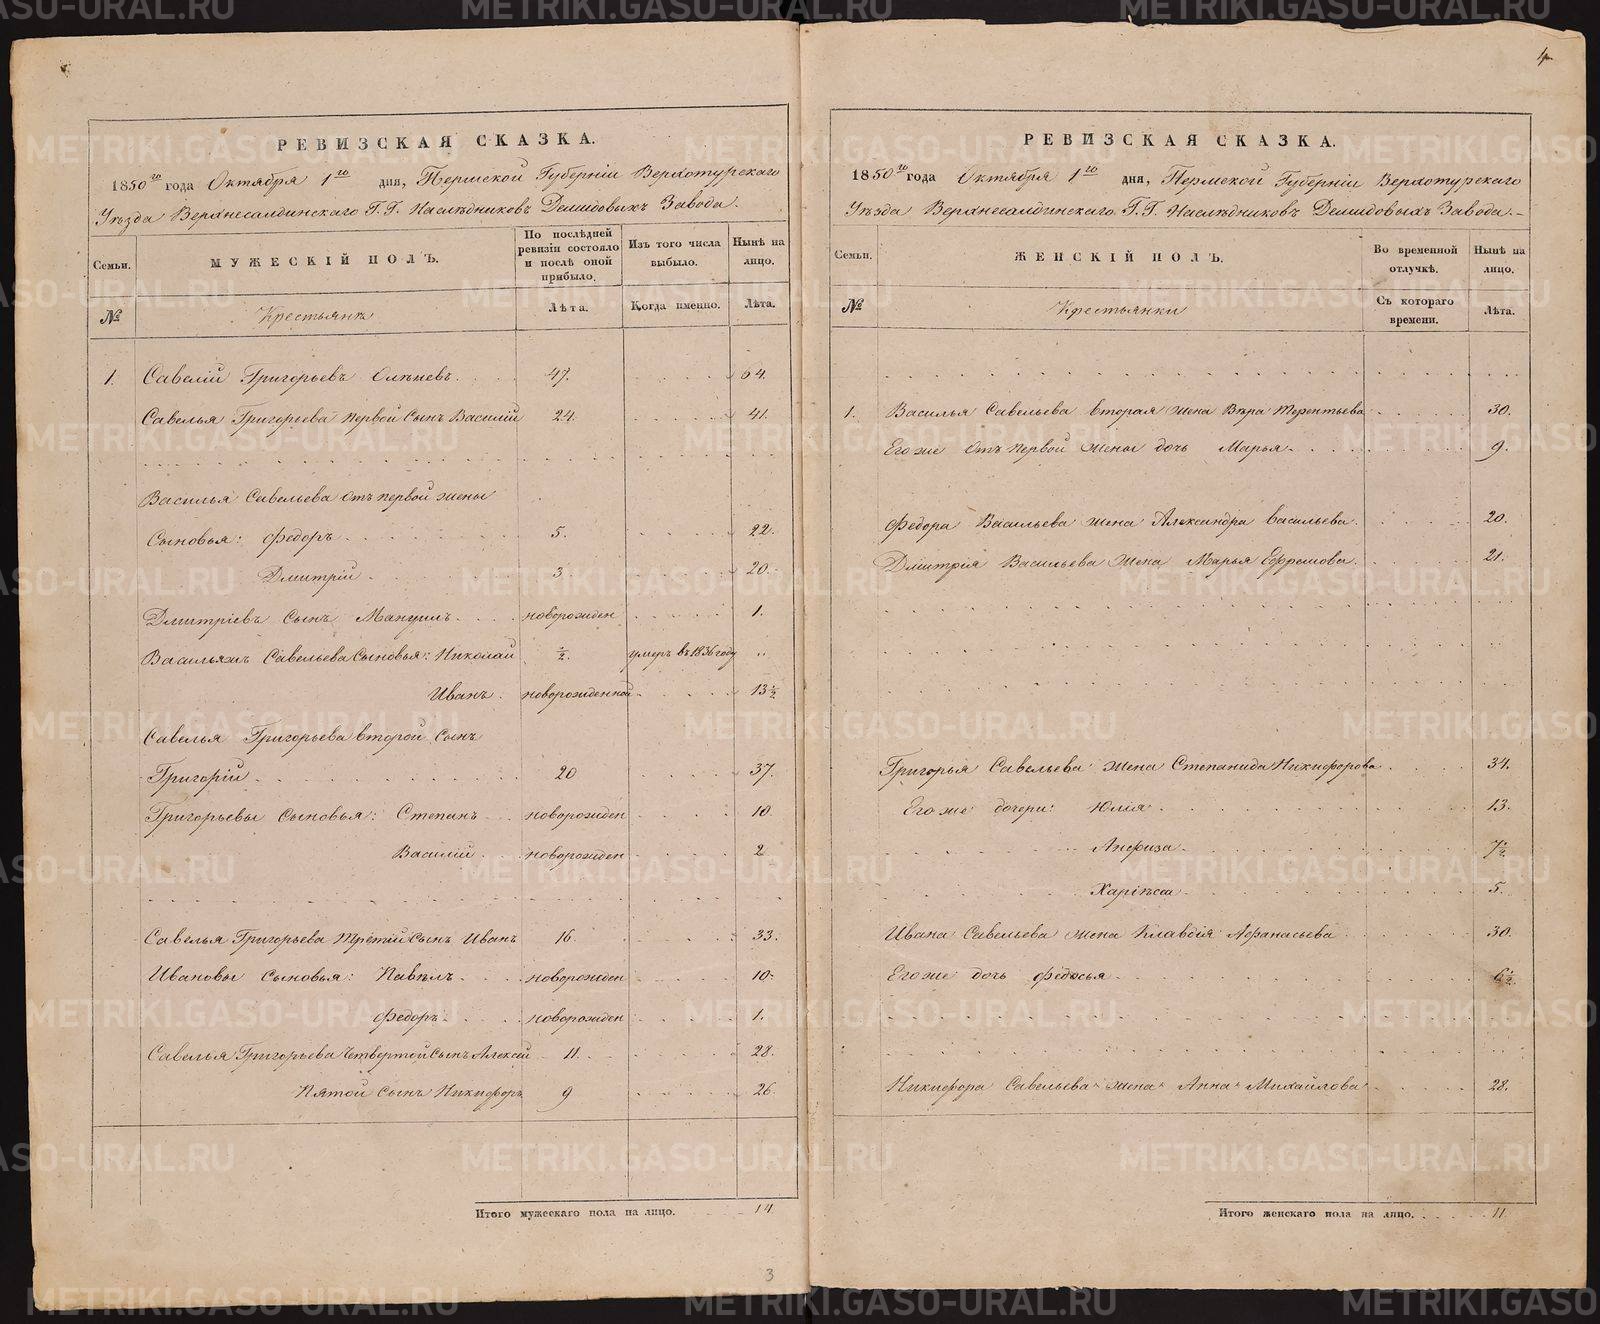 4
РЕВИЗСКАЯ СКАЗКА.
1850го года Октября 1го дня, Пермской Губерніи Верхотурскаго
Уѣзда Верхнесалдинскаго Г.Г. Наслѣдниковъ Демидовыхъ Завода.
Семьи.
МУЖЕСКІЙ ПОЛЪ.
По послѣдней ревизіи состояло и послѣ оной прибыло.
Изъ того числа выбыло.
Нынѣ на лицо.
№
Крестьянъ
Лѣта.
Когда именно.
Лѣта.
1. Савелій Григорьевъ 47. 64.
Савелья Григорьева первой Сынъ Василій 24. 41.
Василья Савельева отъ первой жены
Сыновья: Федоръ 5. 22.
Дмитрій 3 20.
Дмитріевъ Сынъ Мануилъ новорожден 1.
Савельева Сыновья: Николай ½. умеръ въ 1836 году
Иванъ новорожденной 13½
Савелья Григорьева второй Сынъ
Григорій 20 37.
Григорьевы Сыновья: Степанъ новорожден 10.
Василій новорожден 2
Савелья Григорьева третій Сынъ Иванъ 16. 33.
Ивановы Сыновья: Павелъ новорожден 10.
Федоръ новорожден 1.
Савелья Григорьева Четвертой Сынъ Алексѣй 11. 28.
Пятой Сынъ Никифоръ 9 26.
Итого мужескаго пола на лицо. 14
3
РЕВИЗСКАЯ СКАЗКА.
1850го года Октября 1го дня, Пермской Губерніи Верхотурскаго
Уѣзда Верхнесалдинскаго Г.Г. Наслѣдниковъ Демидовыхъ Завода.
Семьи.
ЖЕНСКІЙ ПОЛЪ.
Во временной отлучкѣ.
Нынѣ на лицо.
№
Крестьянки
Съ котораго времени.
Лѣта.
1. Василья Савельева вторая жена Вѣра Терентьева 30.
Его же отъ первой жены дочь Марья 9.
Федора Васильева жена Александра Васильева 20.
Дмитрія Васильева жена Марья Ефремова 21.
Григорья Савельева жена Степанида Никифорова 34.
Его же дочери: Юлія 13.
Анфиза 7½
5.
Ивана Савельева жена Клавдія Афанасьева 30.
Его же дочь Федосья 6½
Никифора Савельева жена Анна Михайлова 28.
Итого женскаго пола на лицо. 11
METRIKI.GASO-URAL.RU